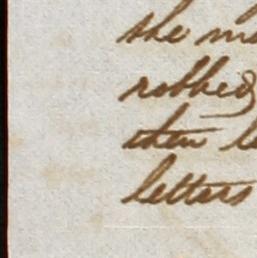 the
robbed
then
letters